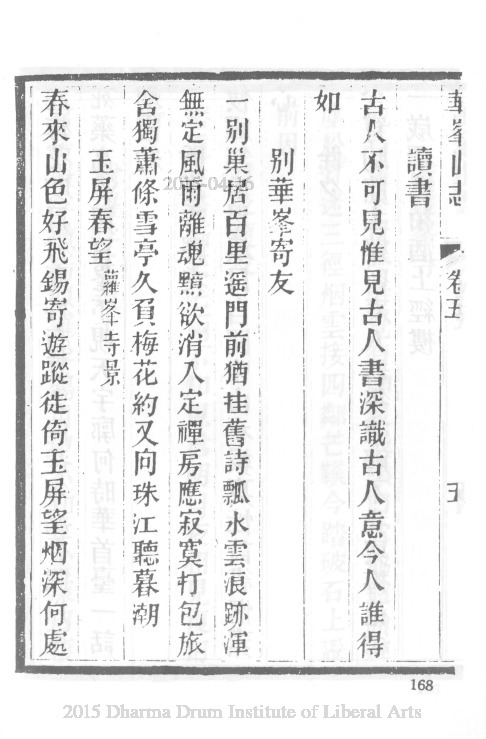 華峯山志 卷五 五
讀書
古人不可見惟見古人書深識古人意今人誰得
如
別華峯寄友
一別巢居百里遥門前猶挂舊詩瓢水雲浪跡渾
無定風雨離魂黯欲消入定禪房應寂寞打包旅
舍獨蕭條雪亭久負梅花約又向珠江聽暮潮
玉屏春望 蘿峯寺景
春來山色好飛錫寄遊蹤徙倚玉屏望烟深何處
2015-04-16
168
2015 Dharma Drum Institute of Liberal Arts